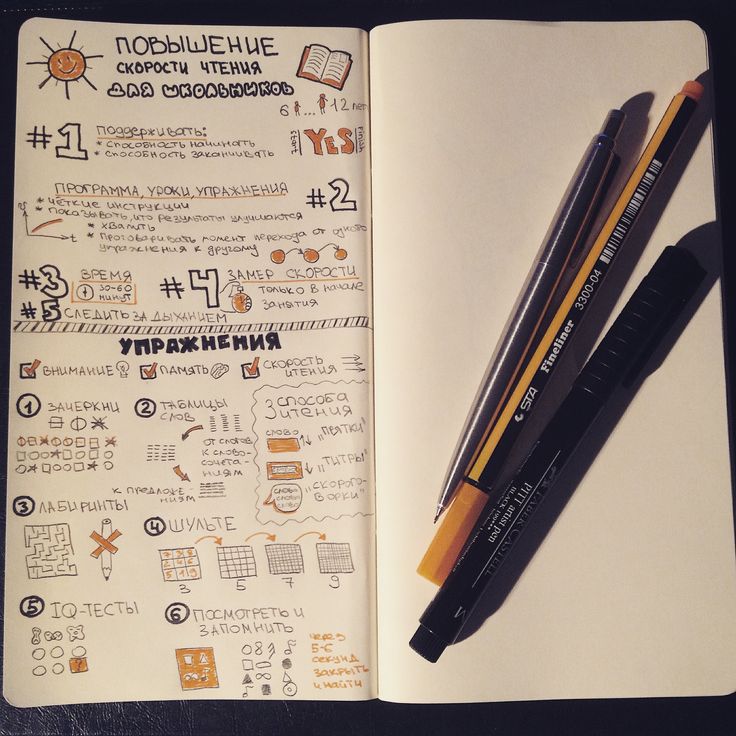 ПОВЫШЕНИЕ
СКОРОСТИ ЧТЕНИЯ
ДЛЯ ШКОЛЬНИКОВ
6 ... 12 лет
#1 ПОДДЕРЖИВАТЬ:
* СПОСОБНОСТЬ НАЧИНАТЬ
* СПОСОБНОСТЬ ЗАКАНЧИВАТЬ
START YES Finish
ПРОГРАММА, УРОКИ, УПРАЖНЕНИЯ #2
* ЧЁТКИЕ ИНСТРУКЦИИ
* ПОКАЗЫВАТЬ, ЧТО РЕЗУЛЬТАТЫ УЛУЧШАЮТСЯ
* ХВАЛИТЬ
* ПРОГОВАРИВАТЬ МОМЕНТ ПЕРЕХОДА ОТ ОДНОГО
УПРАЖНЕНИЯ К ДРУГОМУ
v t
#3 ВРЕМЯ
30-60
МИНУТ
#4 ЗАМЕР СКОРОСТИ
ТОЛЬКО В НАЧАЛЕ
ЗАНЯТИЯ
#5 СЛЕДИТЬ ЗА ДЫХАНИЕМ
УПРАЖНЕНИЯ
ВНИМАНИЕ ПАМЯТЬ СКОРОСТЬ
ЧТЕНИЯ
1 ЗАЧЕРКНИ
2 ТАБЛИЦЫ
СЛОВ
ОТ СЛОГОВ
К СЛОВО-
СОЧЕТА-
НИЯМ
К ПРЕДЛОЖЕ-
НИЯМ
3 СПОСОБА
ЧТЕНИЯ
СЛОВО
"ПРЯТКИ"
"ТИТРЫ"
СЛОВО
СЛОВО
СЛОВО
"СКОРОГО-
ВОРКИ"
3 ЛАБИРИНТЫ
4 ШУЛЬТЕ
3 5 7 9
5 IQ-ТЕСТЫ
?
6 ПОСМОТРЕТЬ И
ЗАПОМНИТЬ
ЧЕРЕЗ
5-6
СЕКУНД
ЗАКРЫТЬ
И НАЙТИ
STA Fineliner 3300-04
FABER-CASTELL
PITT artist pen
S